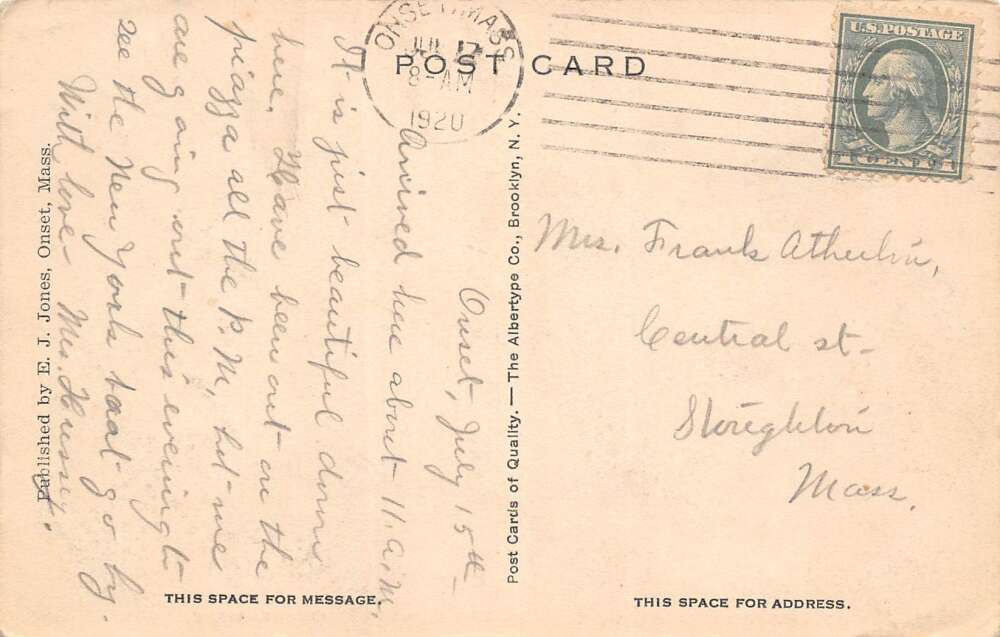 POST CARD
ONSET, MASS.
JUL 17
8-AM
1920
U.S. POSTAGE
1 CENT 1
Onset, July 15th
Arrived here about 11. a.m.
It is just beautiful down
here. Have been out on the
piazza all the P.M. but we
are going out this evening to
see the New York boat go by.
With love - Mrs. Hussey.
Mrs. Frank Atherton,
Central st-
Stoughton
Mass.
Published by E. J. Jones, Onset, Mass.
Post Cards of Quality. — The Albertype Co., Brooklyn, N. Y.
THIS SPACE FOR MESSAGE.
THIS SPACE FOR ADDRESS.